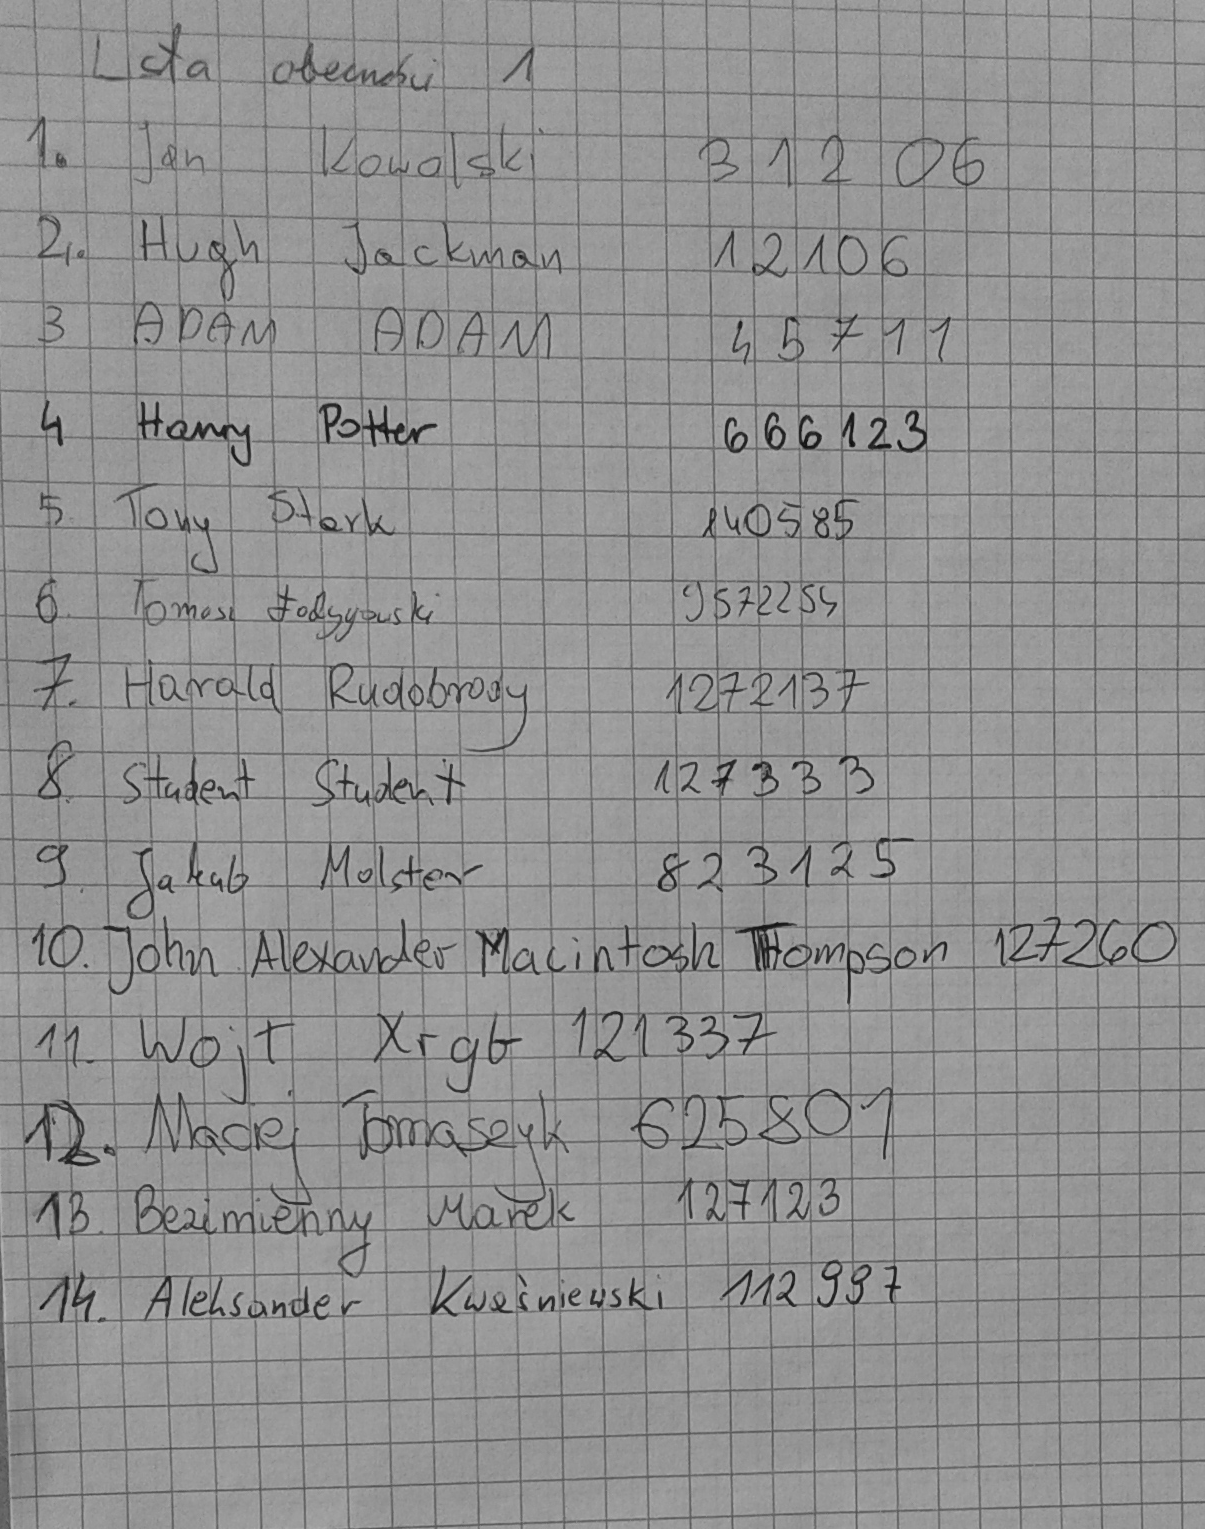 Lsta obecności 1
1. Jan Kowalski 31206
2. Hugh Jackman 12106
3 ADAM ADAM 45711
4 Harry Potter 666123
5. Tony Stark 140585
6. Tomasz 9572254
7. Harald Rudobrody 1272137
8. Student Student 127333
9. Jakub Molster 823125
10. John Alexander Macintosh Thompson 127260
11. Wojt Xrgb 121337
12. Maciej Tomaszyk 625801
13. Bezimienny Marek 127123
14. Aleksander Kwaśniewski 112997